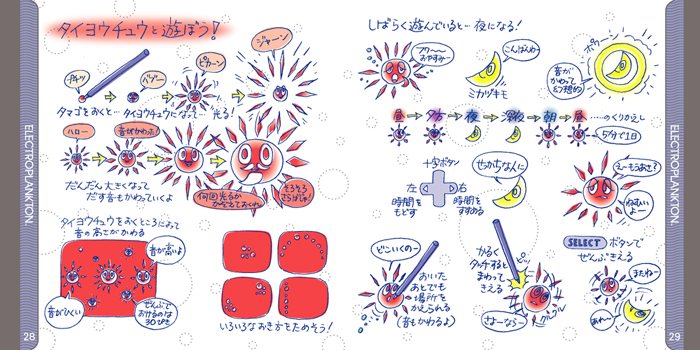 タイヨウチュウと遊ぼう!
ハロー
ピカーン
ジャーン
タマゴをおくと…タイヨウチュウになって…光る!
ハロー
音がかわった!
だんだん大きくなって
だす音もかわっていくよ
何回光るか
かぞえておくれ
そろそろ
さらばじゃ!
タイヨウチュウをおくところによって
音の高さがかわる
音が高いよ
音がひくい
ぜんぶで
おけるのは
30ぴき
いろいろなおき方をためそう!
ELECTROPLANKTON.
28
しばらく遊んでいると…夜になる!
フワ〜〜
おやすみー
こんばんわー
ミカヅキモ
ポワ〜ン
音が
かわって
幻想的
昼→夕方→夜→深夜→朝→昼……のくりかえし
5分で1日
+字ボタン
左
時間を
もどす
右
時間を
すすめる
せっかちなんに
え〜もうあさ?
ねむいよー
SELECT ボタンで
ぜんぶきえる
またねー
あれ〜
どこいくのー
おいた
あとでも
場所を
かえられる
(音もかわるよ)
かるく
タッチすると
まわって
きえる
さよーならー
グルグル
ELECTROPLANKTON.
29